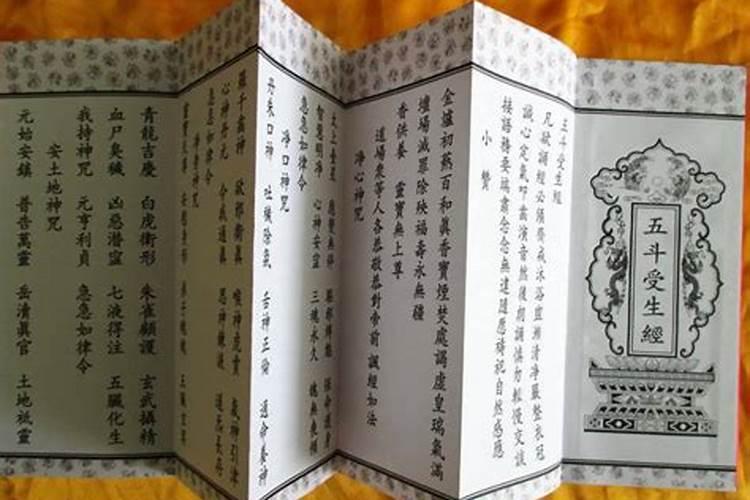 五斗受生經
五斗受生經
凡欲誦經必須齋戒沐浴盥漱清淨嚴整衣冠
誠心定氣叩齒演音然後朗誦慎勿輕慢交談
接語務要端肅念念無違隨應禱祀自然感應
小贊
金爐初爇百和真香寶煙焚處謁虛皇瑞氣滿
壇場滅罪除殃福壽永無疆
香供養 靈寶無上尊
道場眾等人各恭敬恭對帝前 諷經如法
淨心神咒
太上台星 應變無停 驅邪縛魅 保命護身
智慧明淨 心神安寧 三魂永久 魄無喪傾
急急如律令
淨口神咒
丹朱口神 吐穢除氛 舌神正倫 通命養神
羅千齒神 卻邪衛真 喉神虎賁 氣神引津
心神丹元 令我通真 思神鍊液 道炁長存
急急如律令
淨身神咒
靈寶天尊 安慰身形 弟子魂魄 五臟玄冥
青龍吉慶 白虎衛形 朱雀顧護 玄武攝精
血尸臭穢 凶惡潛寍 七液得注 五臟化生
我持神咒 元亨利貞 急急如律令
安土地神咒
元始安鎮 普告萬靈 岳瀆真官 土地祗靈